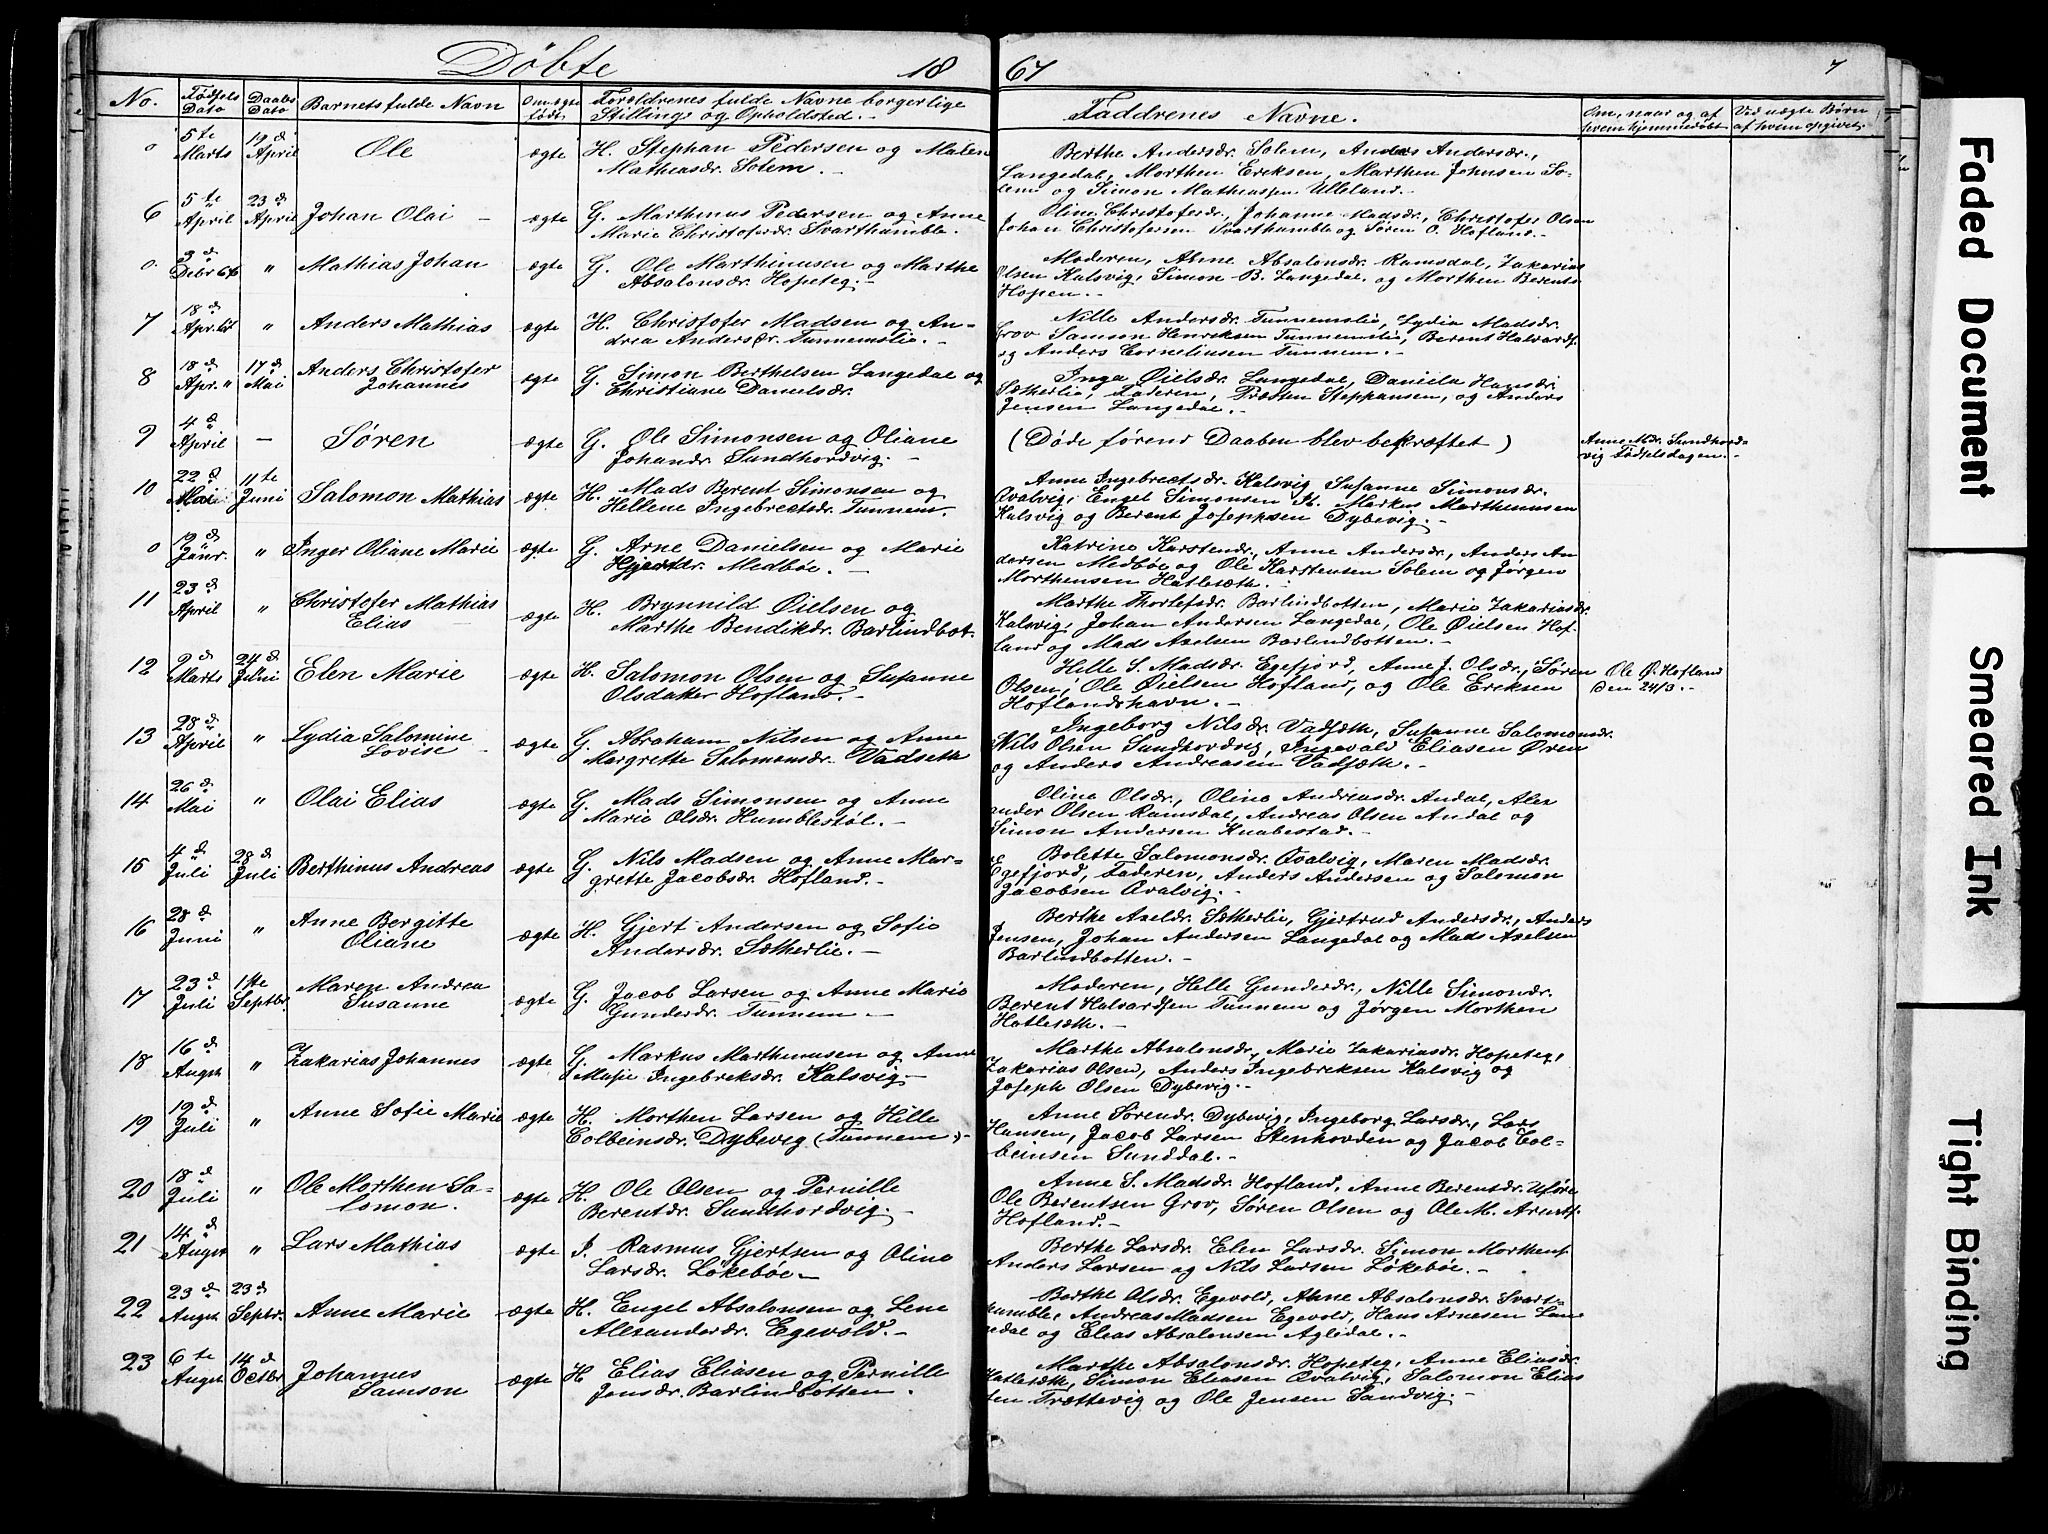 Döbte 18 67 7
No. Födsels Dato Daabs Dato Barnets fulde Navn Om ægte født Forældrenes fulde Navne borgerlige Stilling og Opholdsted.- Faddrenes Navne. Om, naar og af hvem hjemmedøbt Ved uægte Børn af hvem opgivet.
0 5te Marts 19d April Ole ægte H. Stephan Pedersen og Malen
Mathiasdr. Solem.-
Berthe Andersdr. Solem, Anders Andersdr.,
Langedal, Morthen Ericksen, Marthen Johnsen So-
lem og Simon Mathiassen Ulleland.-
6 5te April 23d April Johan Olai - ægte G. Marthinus Pedersen og Anne
Marie Christofersdr. Svarthumble.
Oline Christofersdr., Johanne Madsdr., Christofer Olsen
Johan Christofersen Svarthumble og Søren O. Hofland.-
0 3d Debr 66 " Mathias Johan ægte G. Ole Marthinusen og Marthe
Absalonsdr. Hopeteg.-
Moderen, Anne Absalonsdr. Ramsdal, Zakarias
Olsen Kalsvig, Simon B. Langedal og Morthen Berents.
Hopen.-
7 18d Apr. 67 " Anders Mathias ægte H. Christofer Madsen og An-
drea Andersdr. Tunnemslie.-
Nille Andersdr. Tunnemslie, Lydia Madsdr.
Grov Samson Henriksen Tunnemslie, Berent Halvardsf.
og Anders Corneliusen Tunnem.-
8 18d Apr. " 17d Mai Anders Christofer
Johannes ægte G. Simon Berthelsen Langedal og
Christiane Danielsdr.
Inga Øielsdr. Langedal, Daniela Hansdr.
Sætherlie, Faderen, Præsten Steppansen, og Anders
Jensen Langedal.-
9 4d April - Søren ægte G. Ole Simonsen og Oliane
Johandr. Sundhordvig.-
(Døde førend Daaben blev bekræftet) Anne Mdr. Sundhord-
vig Fødselsdagen.-
10 22d Mai 11te Juni Salomon Mathias ægte H. Mads Berent Simonsen og
Hellene Ingebretsdr. Tunnem.
Anne Ingebretsdr. Kalsvig Susanne Simonsdr.
Qvalvig, Engel Simonsen St. Markus Marthinusen
Kalsvig og Berent Josephsen Dybevig.-
0 19d Janr. " Inger Oliane Marie ægte G. Arne Danielsen og Marie
Hjertdr. Medbøe.-
Katrine Karstendr., Anne Andersdr., Anders An
dersen Medbøe og Ole Karstensen Solem og Jørgen
Morthensen Hatlesæth.-
11 23d April " Christofer Mathias
Elias ægte H. Brynnild Øielsen og
Marthe Bendikdr. Barlindbot.
Marthe Thorlefsdr. Barlindbotten, Marie Zakariasdr.
Kalsvig, Johan Andersen Langedal, Ole Øielsen Hof-
land og Mads Axelsen Barlindbotten.-
12 9d Marts 24d Juni Elen Marie ægte H. Salomon Olsen og Susanne
Olsdatter Hofland.-
Hille S. Madsdr. Egefjord, Anne J. Olsdr., Søren
Olsen, Ole Øielsen Hofland, og Ole Ericksen
Hoflandshavn.-
Ole Ø. Hofland
den 24/3.-
13 28d April " Lydia Salomine
Lovise - ægte G. Abraham Nilsen og Anne
Margrette Salomonsdr. Vadseth
Ingeborg Nilsdr. Vadsæth, Susanne Salomonsdr.
Nils Olsen Sundhordvig, Ingevald Eliasen Øren
og Anders Andreasen Vadsæth.-
14 26d Mai " Olai Elias ægte G. Mads Simonsen og Anne
Marie Olsdr. Humblestøl.-
Oline Olsdr., Oline Andreasdr. Andal, Alex
ander Olsen Ramsdal, Andreas Olsen Andal og
Simon Andersen Knabestad.-
15 4d Juli 28d Juli Berthinus Andreas ægte G. Nils Madsen og Anne Mar-
grette Jacobsdr. Hofland.-
Bolette Salomonsdr. Qvalvig, Maren Madsdr.
Egefjord, Faderen, Anders Andersen og Salomon
Jacobsen Qvalvig.-
16 28d Juni " Anne Bergitte
Oliane ægte H. Gjert Andersen og Sofie
Andersdr. Sætherlie.-
Berthe Axeldr. Sætherlie, Gjertrud Andersdr., Anders
Jensen, Johan Andersen Langedal og Mads Axelsen
Barlindbotten.-
17 23d Juli 1ste Septbr. Maren Andrea
Susanne ægte G. Jacob Larsen og Anne Marie
Gunderdr. Tunnem.-
Moderen, Helle Gunderdr., Nille Simondr.
Berent Halvardsen Tunnem og Jørgen Morthen
Hatlesæth.-
18 16d Augst " Zakarias Johannes ægte G. Markus Marthinusen og Anne
Marie Ingebreksdr. Kalsvig-
Marthe Absalonsdr. Marie Zakariasdr. Hopeteg,
Zakarias Olsen, Anders Ingebreksen Kalsvig og
Joseph Olsen Dybevig.-
19 19d Juli " Anne Sofie Marie ægte H. Morthen Larsen og Hille
Colbeinsdr. Dybevig (Tunnem)-
Anne Sørendr. Dybevig, Ingeborg Larsdr., Lars
Hansen, Jacob Larsen Stenhovden og Jacob Col-
beinsen Sunddal.-
20 18d Juli " Ole Morthen Sa-
lomon. ægte H. Ole Olsen og Pernille
Berentdr. Sundhordvig.-
Anne S. Madsdr. Hofland, Anne Berentdr. Uføre
Ole Berentsen Grov, Søren Olsen og Ole M. Arentsf.
Hofland.-
21 14d Augst " Lars Mathias ægte J. Rasmus Gjertsen og Oline
Larsdr. Løkebøe.-
Berthe Larsdr. Elen Larsdr. Simon Morthensf.
Anders Larsen og Nils Larsen Løkebøe.-
22 23d Augst 23d Septbr. Anne Marie ægte H. Engel Absalonsen og Lene
Alexanderdr. Egevold.-
Berthe Olsdr. Egevold, Anne Absalonsdr. Svart-
humble, Andreas Madsen Egevold, Hans Arnesen Lan
gedal og Elias Absalonsen Aglidal.-
23 6te Augst 14d Octbr. Johannes
Samson ægte H Elias Eliasen og Pernille
Jensdr. Barlindbotten.
Marthe Absalonsdr. Hopeteg, Anne Eliasdr.
Hatlesæth, Simon Eliasen Qvalvig, Salomon Elias
sen Trættevig og Ole Jensen Sandvig.-
Faded Document
Smeared Ink
Tight Binding